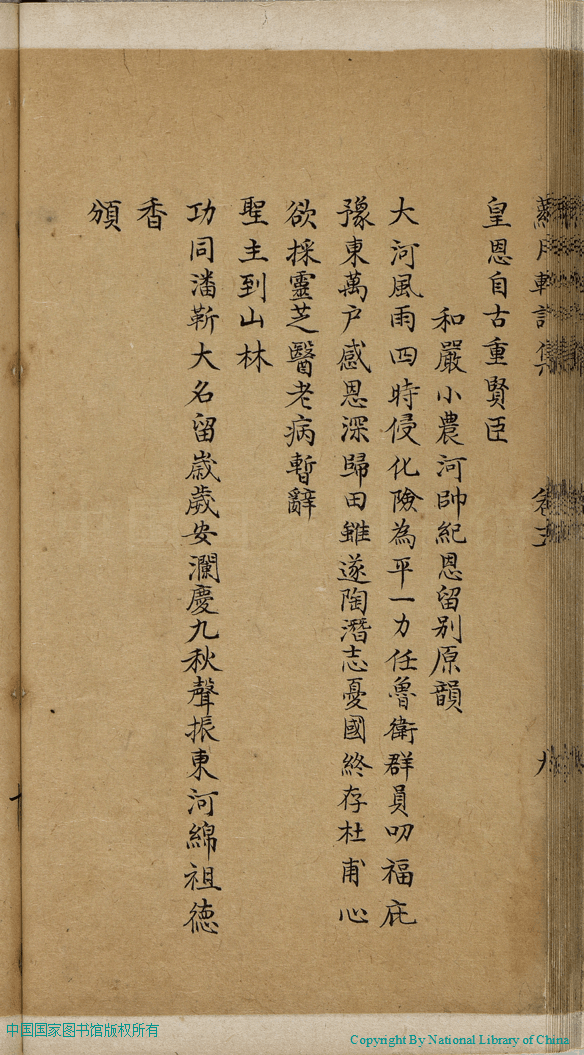 皇恩自古重賢臣
和嚴小農河帥紀恩留别原韻
大河風雨四時侵化險為平一力任魯衛群員叨福庇
豫東萬户感恩深歸田雖遂陶潛志憂國終存杜甫心
欲採靈芝醫老病暫辭
聖主到山林
功同潘靳大名留歲歲安瀾慶九秋聲振東河綿祖德
香
頒
中国国家图书馆版权所有
Copyright By National Library of China